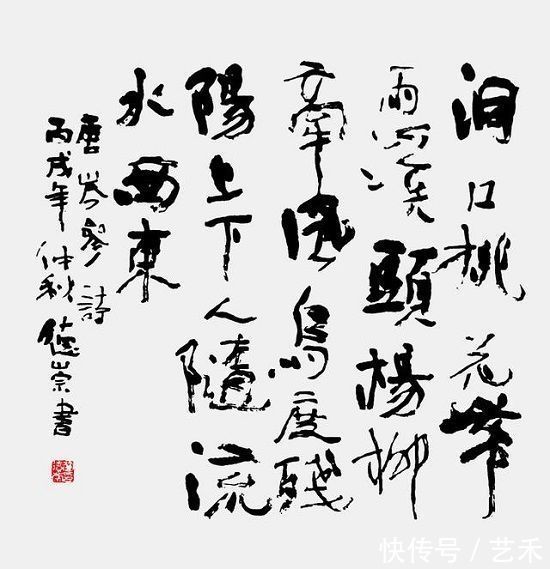 洞口桃花带
雨溪头杨柳
牵风鸟度残
陽上下人隨流
水西東
唐岑參詩
丙戌年仲秋德崇書
快传号/艺禾